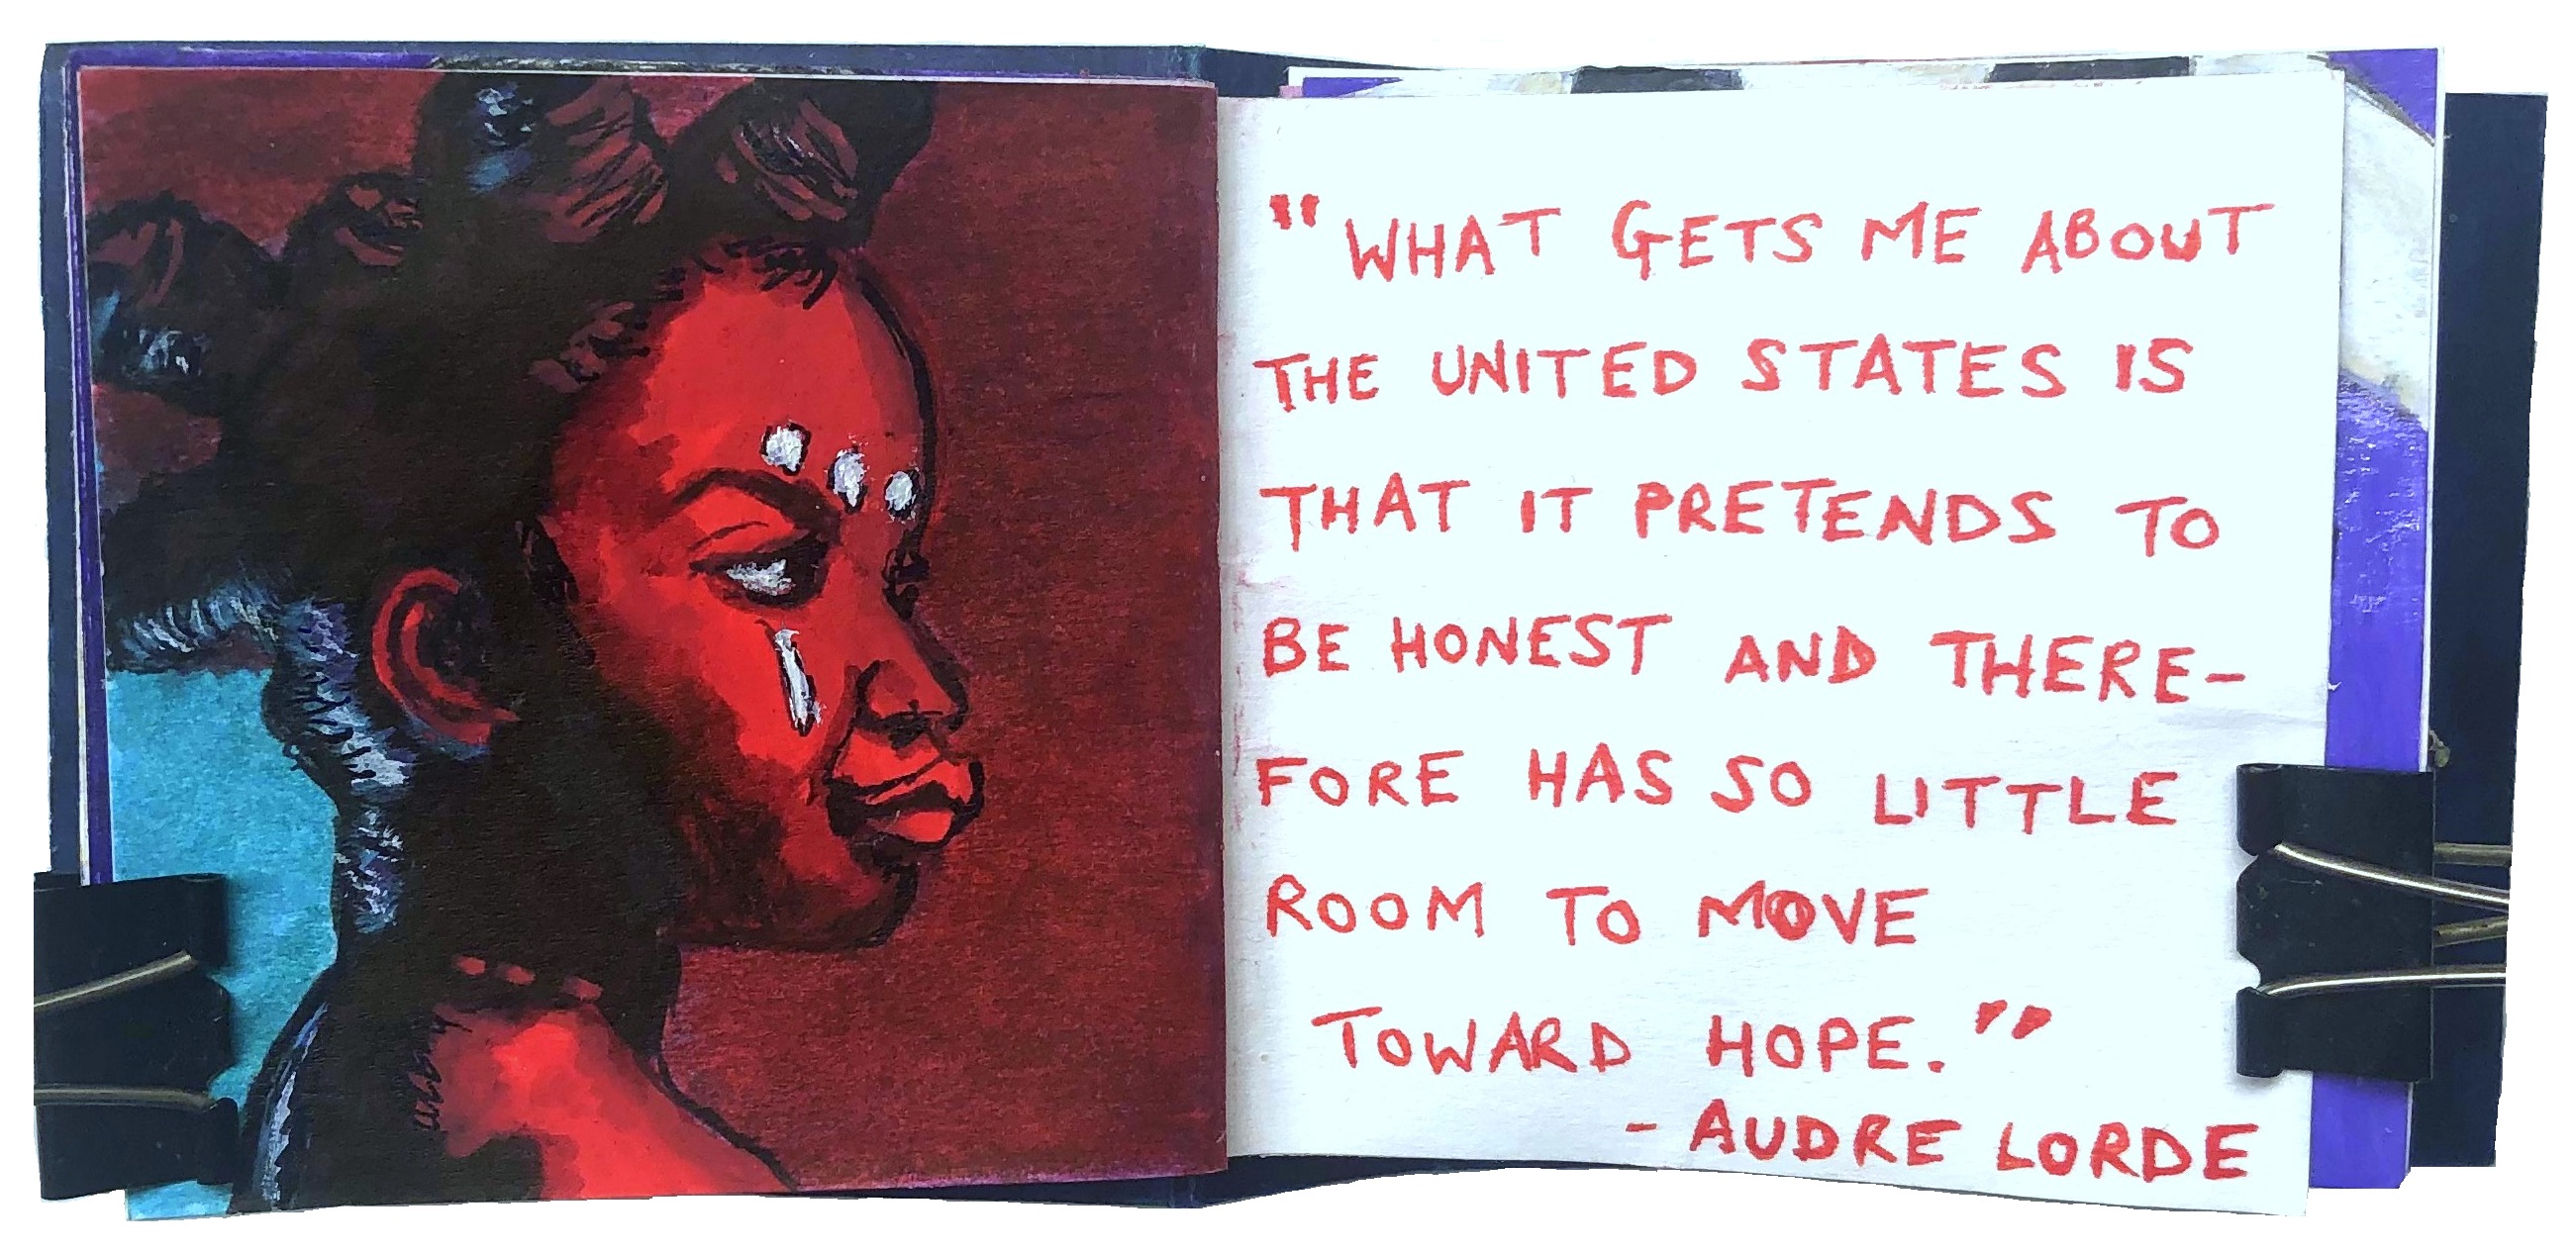 "WHAT GETS ME ABOUT
THE UNITED STATES IS
THAT IT PRETENDS TO
BE HONEST AND THERE-
FORE HAS SO LITTLE
ROOM TO MOVE
TOWARD HOPE."
- AUDRE LORDE